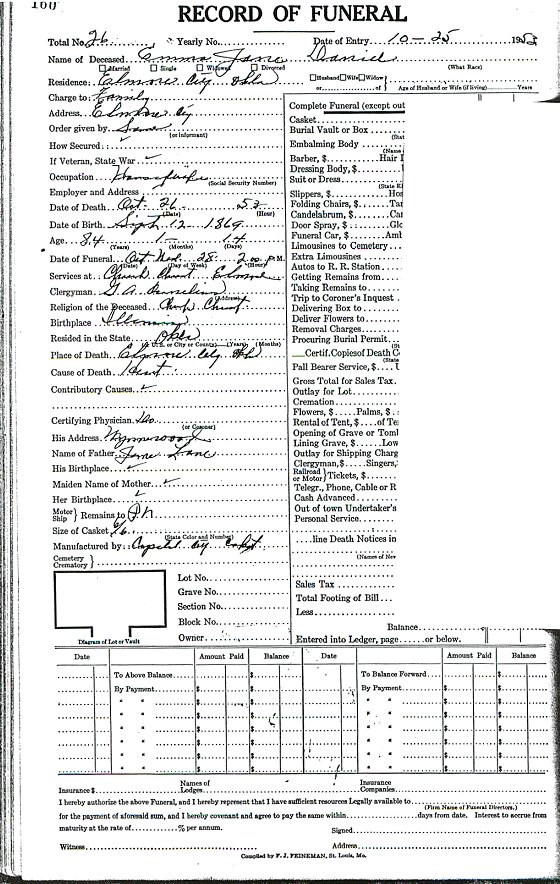 160
RECORD OF FUNERAL
Total No. 26 Yearly No. Date of Entry 10-25 1953
Name of Deceased Emma Jane Daniel
Married Single Widowed Divorced (What Race)
Residence: Elmore City Okla Husband Wife Widow
or of Age of Husband or Wife (if living) Years
Charge to: Family
Address Elmore City
Order given by Same
(or informant)
How Secured:
If Veteran, State War
Occupation Housewife
(Social Security Number)
Employer and Address
Date of Death Oct. 26
(Date) (Hour)
Date of Birth Sept 12 1869
Age 84 1 14
(Years) (Months) (Days)
Date of Funeral Oct Wed. 28 2:00 P.M.
(Date) (Day of Week) (Hour)
Services at Church Christ Elmore
Clergyman G. A.
(Address)
Religion of the Deceased Church Christ
Birthplace
Resided in the State Okla
(U. S. or City or County) (Years) (Months)
Place of Death Elmore City Okla
Cause of Death Heart
Contributory Causes
Certifying Physician
(or Coroner)
His Address Wynnewood
Name of Father Lane
His Birthplace
Maiden Name of Mother
Her Birthplace
Motor
Ship } Remains to
Size of Casket 6/6
(State Color and Number)
Manufactured by: Capitol City Casket
Cemetery
Crematory }
Complete Funeral (except out
Casket
Burial Vault or Box
(Stat
Embalming Body
(Name
Barber, $ Hair
Dressing Body, $
Suit or Dress
(State K
Slippers, $ Hos
Folding Chairs, $ Tar
Candelabrum, $ Ca
Door Spray, $ Glo
Funeral Car, $ Aml
Limousines to Cemetery
Extra Limousines
Autos to R. R. Station
Getting Remains from
Taking Remains to
Trip to Coroner's Inquest
Delivering Box to
Deliver Flowers to
Removal Charges
Procuring Burial Permit
(St
Certif. Copies of Death C
(St
Pall Bearer Service, $
Gross Total for Sales Tax
Outlay for Lot
Cremation
Flowers, $ Palms, $
Rental of Tent, $ of Te
Opening of Grave or Tom
Lining Grave, $ Low
Outlay for Shipping Charg
Clergyman, $ Singers,
Railroad
or Motor } Tickets, $
Telegr., Phone, Cable or R
Cash Advanced
Out of town Undertaker's
Personal Service
line Death Notices in
(Names of Nev
Sales Tax
Total Footing of Bill
Less
Balance
Entered into Ledger, page or below.
Lot No.
Grave No.
Section No.
Block No.
Owner
Diagram of Lot or Vault
Date Amount Paid Balance Date Amount Paid Balance
To Above Balance $ $ To Balance Forward $ $
By Payment $ $ By Payment $ $
" " $ $ " " $ $
" " $ $ " " $ $
" " $ $ " " $ $
" " $ $ " " $ $
" " $ $ " " $ $
" " $ $ " " $ $
Insurance $ Names of Lodges Insurance Companies
I hereby authorize the above Funeral, and I hereby represent that I have sufficient resources Legally available to
(Firm Name of Funeral Directors.)
for the payment of aforesaid sum, and I hereby covenant and agree to pay the same within days from date. Interest to accrue from
maturity at the rate of % per annum. Signed
Witness Address
Compiled by F. J. FEINEMAN, St. Louis, Mo.